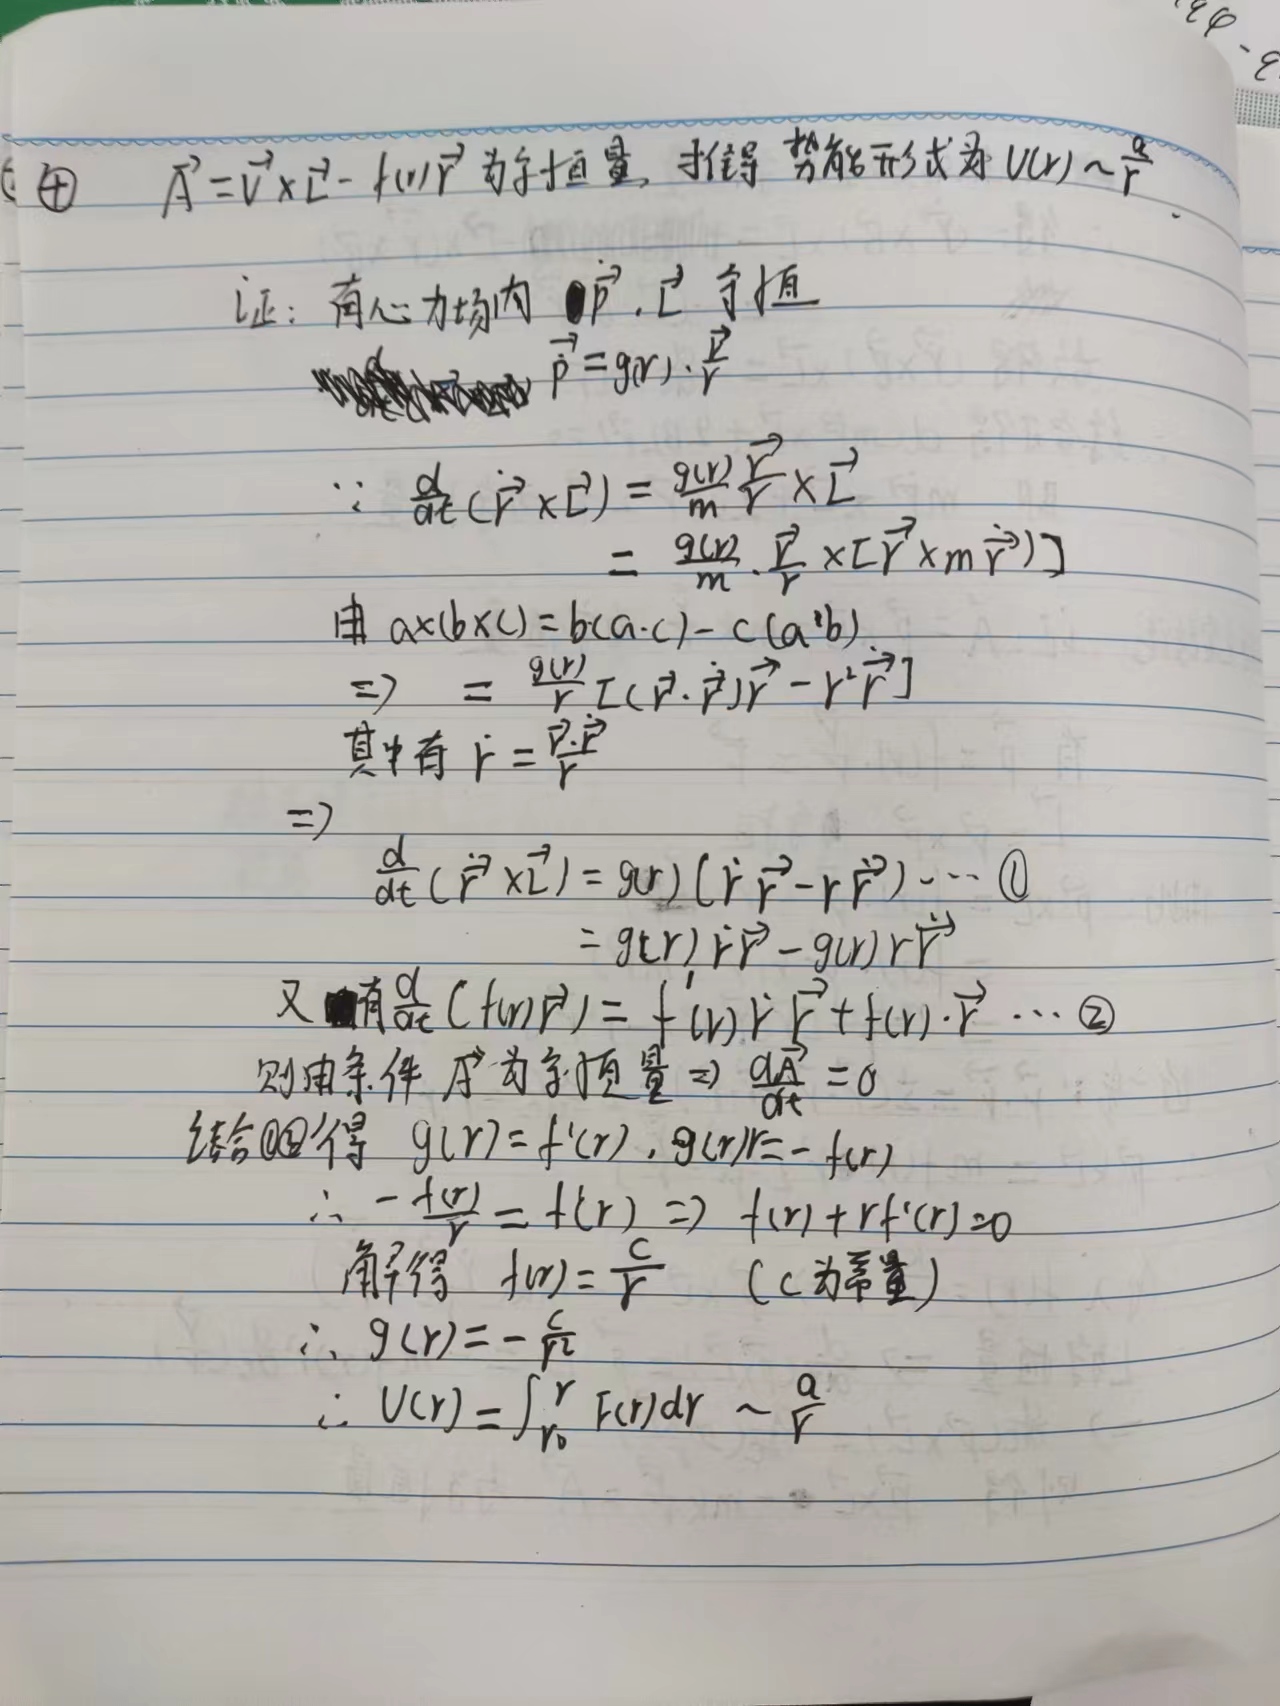 ④ A⃗ = v⃗ × L⃗ - f(r)r⃗ 为守恒量, 推得 势能形式为 U(r) ~ a/r.
证: 有心力场内 p⃗, L⃗ 守恒
p⃗̇ = g(r)·r⃗/r
∵ d/dt(r⃗̇ × L⃗) = g(r)/m r⃗/r × L⃗
= g(r)/m · r⃗/r × [r⃗ × m r⃗̇)]
由 a×(b×c) = b(a·c) - c(a·b)
=> = g(r)/r [(r⃗·r⃗̇)r⃗ - r²r⃗̇]
其中有 ṙ = r⃗·r⃗̇/r
=>
d/dt(r⃗̇ × L⃗) = g(r)(ṙ r⃗ - r r⃗̇) ··· ①
= g(r)ṙr⃗ - g(r)r r⃗̇
又有 d/dt(f(r)r⃗) = f'(r)ṙ r⃗ + f(r)·r⃗̇ ··· ②
则由条件 A⃗ 为守恒量 => dA⃗/dt = 0
结合①②得 g(r) = f'(r), g(r)r = - f(r)
∴ - f(r)/r = f'(r) => f(r) + rf'(r) = 0
解得 f(r) = c/r (c为常量)
∴ g(r) = - c/r²
∴ U(r) = ∫_{r₀}^{r} F(r)dr ~ a/r